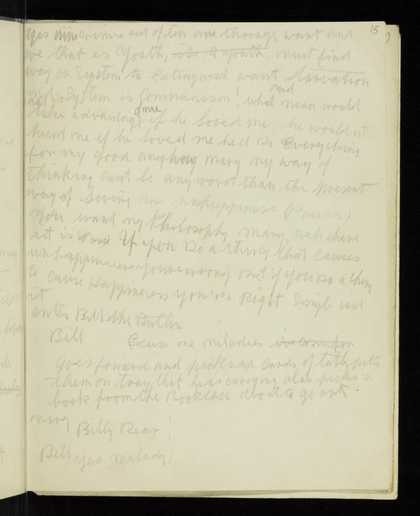 15
yes nine crimes out of ten are through want and
we that is Youth, is it youth must find
way or System to Extinguish want Starvation
System is Communism! What man would
and
take advantage of me if he loved me, he wouldn't
hurt me if he loved me he'd do Everything
for my good anyhow many my way of
thinking can't be any worse than the present
way of living in unhappiness (Pause)
You want my Philosophy mam, well here
it is If you do a thing that causes
unhappiness you're wrong but if you do a thing
to cause Happiness you're Right Simple isn't
it
enter Bill the Butler
Bill Excuse me miladies
goes forward and picks up cards of table puts
them on tray that he is carrying also picks a
book from the Bookcase about to go out.
mary Billy Dear!
Bill yes milady!